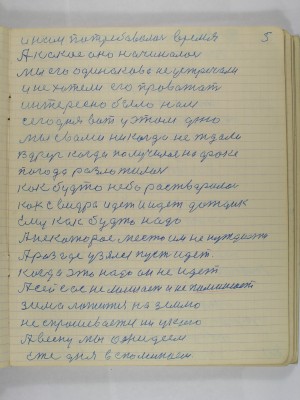 5
и нам потребовалось время
А какое оно начиналось
мы его одинаково не встречали
и не хотели его провожат
интересно было нам
сегодня вот у этом
мы свами никогда не ждали
Вдруг когда получился на дроки
погода разложилась
как будто небо растваралось
как с ведра идет и идет дождик
Ему как будто надо
А некоторое место им не нуждаеть
А раз где узялся пуст идет.
когда это надо он не идет
А сейчас не и не
зима ложится на землю
не спрошевается ни укого
А весну мы ожидаем
Еже дня вспоминаем.